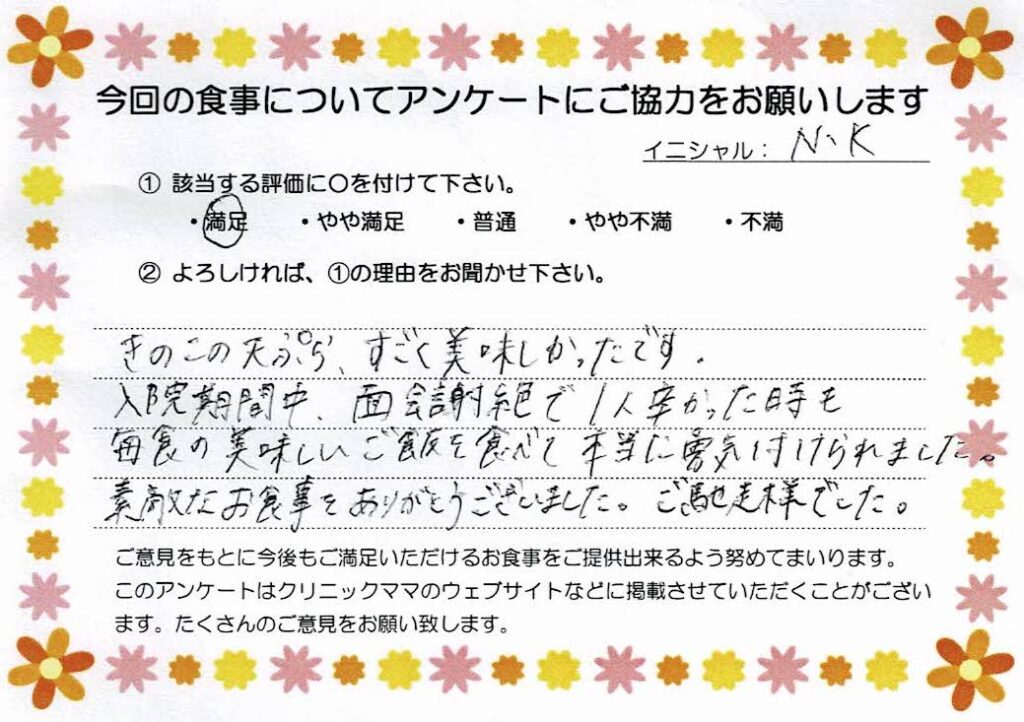 今回の食事についてアンケートにご協力をお願いします
イニシャル： N.K
① 該当する評価に〇を付けて下さい。
・満足 ・やや満足 ・普通 ・やや不満 ・不満
② よろしければ、①の理由をお聞かせ下さい。
きのこの天ぷら、すごく美味しかったです。
入院期間中、面会謝絶で1人辛かった時も
毎食の美味しいご飯を食べて本当に勇気付けられました。
素敵なお食事をありがとうございました。ご馳走様でした。
ご意見をもとに今後もご満足いただけるお食事をご提供出来るよう努めてまいります。
このアンケートはクリニックママのウェブサイトなどに掲載させていただくことがござい
ます。たくさんのご意見をお願い致します。